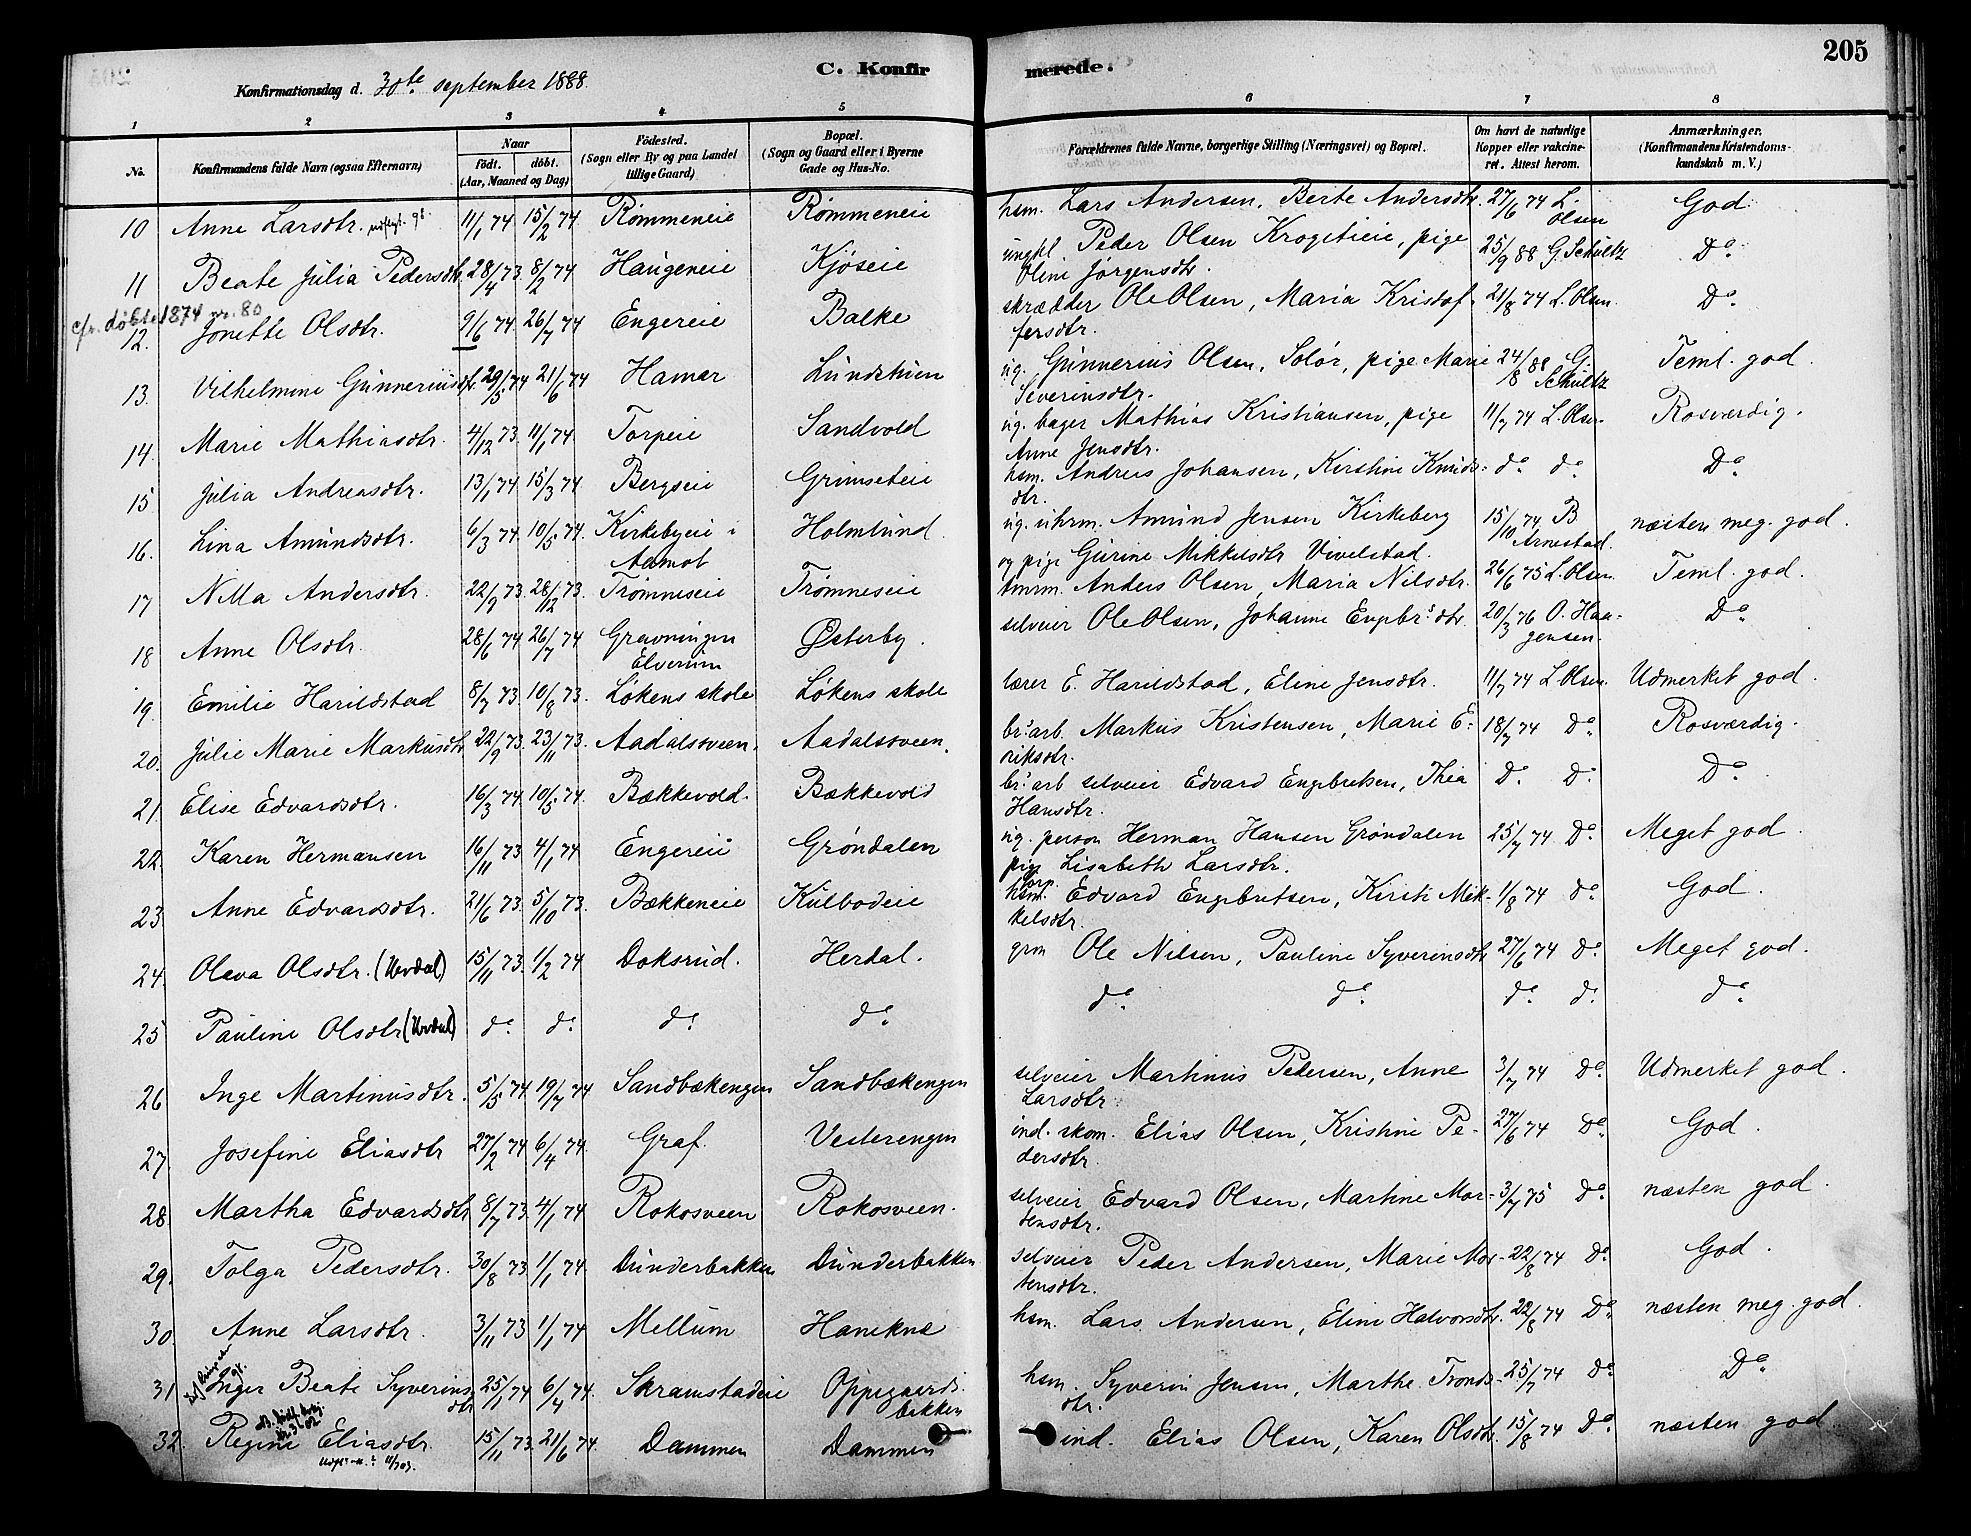 205
C. Konfirmerede.
Konfirmationsdag d. 30te september 1888.
1 2 3 4 5 6 7 8
No. Konfirmandens fulde Navn (ogsaa Efternavn)
Naar födt. döbt. (Aar, Maaned og Dag)
Födested. (Sogn eller By og paa Landet tillige Gaard)
Bopæl. (Sogn og Gaard eller i Byerne Gade og Hus-No.
Forældrenes fulde Navne, borgerlige Stilling (Næringsvei) og Bopæl.
Om havt de naturlige Kopper eller vaccineret. Attest herom.
Anmærkninger. (Konfirmandens Kristendomskundskab m. V.)
10 Anne Larsdtr. 11/1 74 15/2 74 Rømmeneie Rømmeneie hsm. Lars Andersen, Berte Andersdtr. 27/6 74 L. Olsen God
11 Beate Julia Pedersdtr. 28/4 73. 8/2 74 Haugeneie Kjøseie ungkl. Peder Olsen Krogstieie, pige Oline Jørgensdtr. 25/9 88 G. Schultz Do.
cfr. døbte 1874 nr. 80
12. Jonette Olsdtr. 9/6 74. 26/7 74 Engereie Balke skrædder Ole Olsen, Maria Kristoffersdtr. 21/8 74 L. Olsen. Do.
13. Vilhelmine Gunneriusdtr. 29/5 74 21/6 74 Hamar Lundstuen ug. Gunnerius Olsen, Solør, pige Marie Severinsdtr. 24/8 88 G. Schultz Teml. god.
14. Marie Mathiasdtr. 4/12 73. 11/1 74. Torpeie Sandvold ug. bager Mathias Kristiansen, pige Anne Jensdtr. 11/7 74 L. Olsen. Rosværdig.
15 Julia Andreasdtr. 13/1 74 15/3 74 Bergseie Grimseteie hsm. Andreas Johansen, Kirstine Knudsdtr. do. do. Do.
16. Lina Amundsdtr. 6/3 74. 10/5 74. Kirkebyeie i Aamot Holmlund. ug. uhrm. Amund Jensen Kirkeberg og pige Gurine Mikkelsdtr Vivelstad. 15/10 74 B Arnestad. næsten meg. god.
17 Nilla Andersdtr. 22/9 73. 28/12 73. Trømneseie Trømneseie tmrm. Anders Olsen, Maria Nilsdtr. 26/6 75 L. Olsen. Teml. god.
18 Anne Olsdtr. 28/6 74 26/7 74 Gravningen Elverum Østerby. selveier Ole Olsen, Johanne Engbr.sdtr. 20/3 76 O. Haagensen. Do.
19. Emilie Harildstad 8/7 73. 10/8 73. Løkens skole Løkens skole lærer E. Harildstad, Eline Jensdtr. 11/7 74 L. Olsen. Udmerket god.
20. Julie Marie Markusdtr. 22/9 73. 23/11 73. Aadalsveen. Aadalsveen. br. arb. Markus Kristensen, Marie Eriksdtr. 18/7 74 Do. Rosværdig.
21. Elise Edvardsdtr. 16/3 74. 10/5 74. Bækkevold. Bækkevold br. arb selveier Edvard Engebretsen, Thea Hansdtr. Do. Do. Do.
22. Karen Hermansen 16/11 73. 4/1 74 Engereie Grøndalen ug. person Herman Hansen Grøndalen pige Lisabeth Larsdtr. 25/7 74 Do. Meget god.
23. Anne Edvardsdtr. 21/6 73. 5/10 73. Bækkeneie Kulbodeie hsm. Edvard Engebretsen, Kirsti Mikkelsdtr. 1/8 74 do. God.
24. Olava Olsdtr. (Herdal) 15/11 73. 1/2 74 Doksrud. Herdal. grm Ole Nilsen, Pauline Syverinsdtr. 27/6 74 Do. Meget god.
25 Pauline Olsdtr (Herdal) do. do. do. do. do. do. do. do. do.
26 Inge Martinusdtr. 5/5 74. 19/7 74 Sandbækengen Sandbækengen selveier Martinus Pedersen, Anne Larsdtr. 3/7 74 Do. Udmerket god.
27. Josefine Eliasdtr 27/2 74 6/4 74. Graf. Vesterengen ind. skom. Elias Olsen, Kristine Pedersdtr. 27/6 74 Do. God.
28. Martha Edvardsdtr. 8/7 73. 4/1 74 Rokosveen Rokosveen. selveier Edvard Olsen, Martine Mortensdtr. 3/7 75 Do. næsten god.
29. Tolga Pedersdtr. 30/8 73. 1/1 74 Dunderbakken Dunderbakken selveier Peder Andersen, Marie Mortensdtr. 22/8 74 Do. God.
30. Anne Larsdtr. 3/11 73 1/1 74 Mellum Hanekne hsm. Lars Andersen, Eline Halvorsdtr. 22/8 74 Do. næsten meg. god.
31. Inger Beate Syverinsdtr 25/1 74 6/4 74. Skramstadeie Oppegaardsbakken hsm. Syverin Jensen, Marthe Trondsdtr. 25/7 74 Do. Do.
32. Regine Eliasdtr. 15/11 73. 21/6 74. Dammen Dammen ind. Elias Olsen, Karen Olsdtr. 15/8 74 Do. næsten god